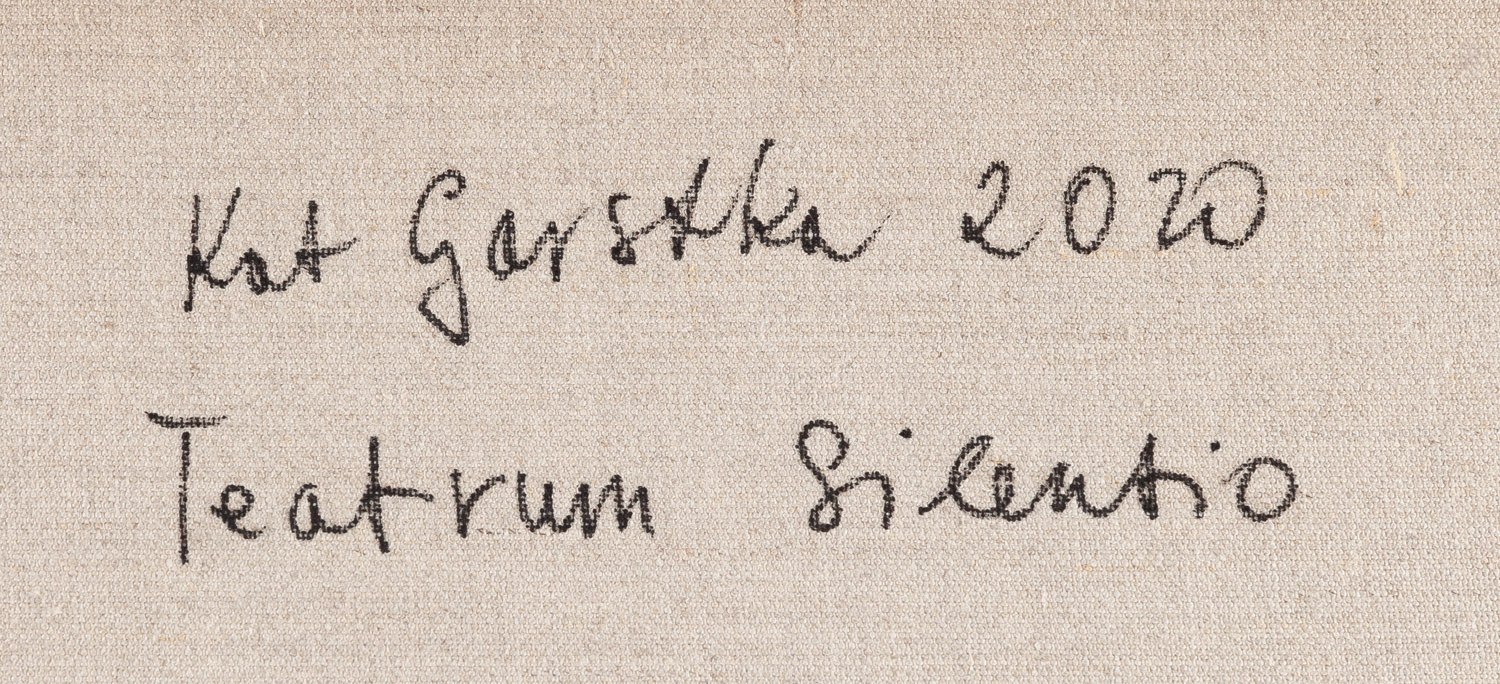 Kat Garstka 2020
Teatrum Silentio